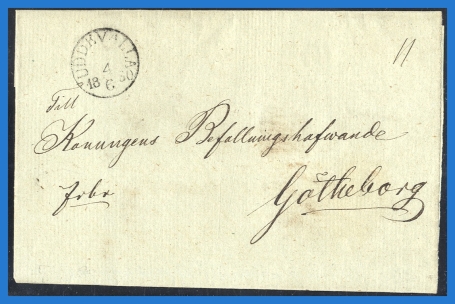 UDDEVALLA
11
4
18 6
Till
Konungens Befallningshafwande
Götheborg